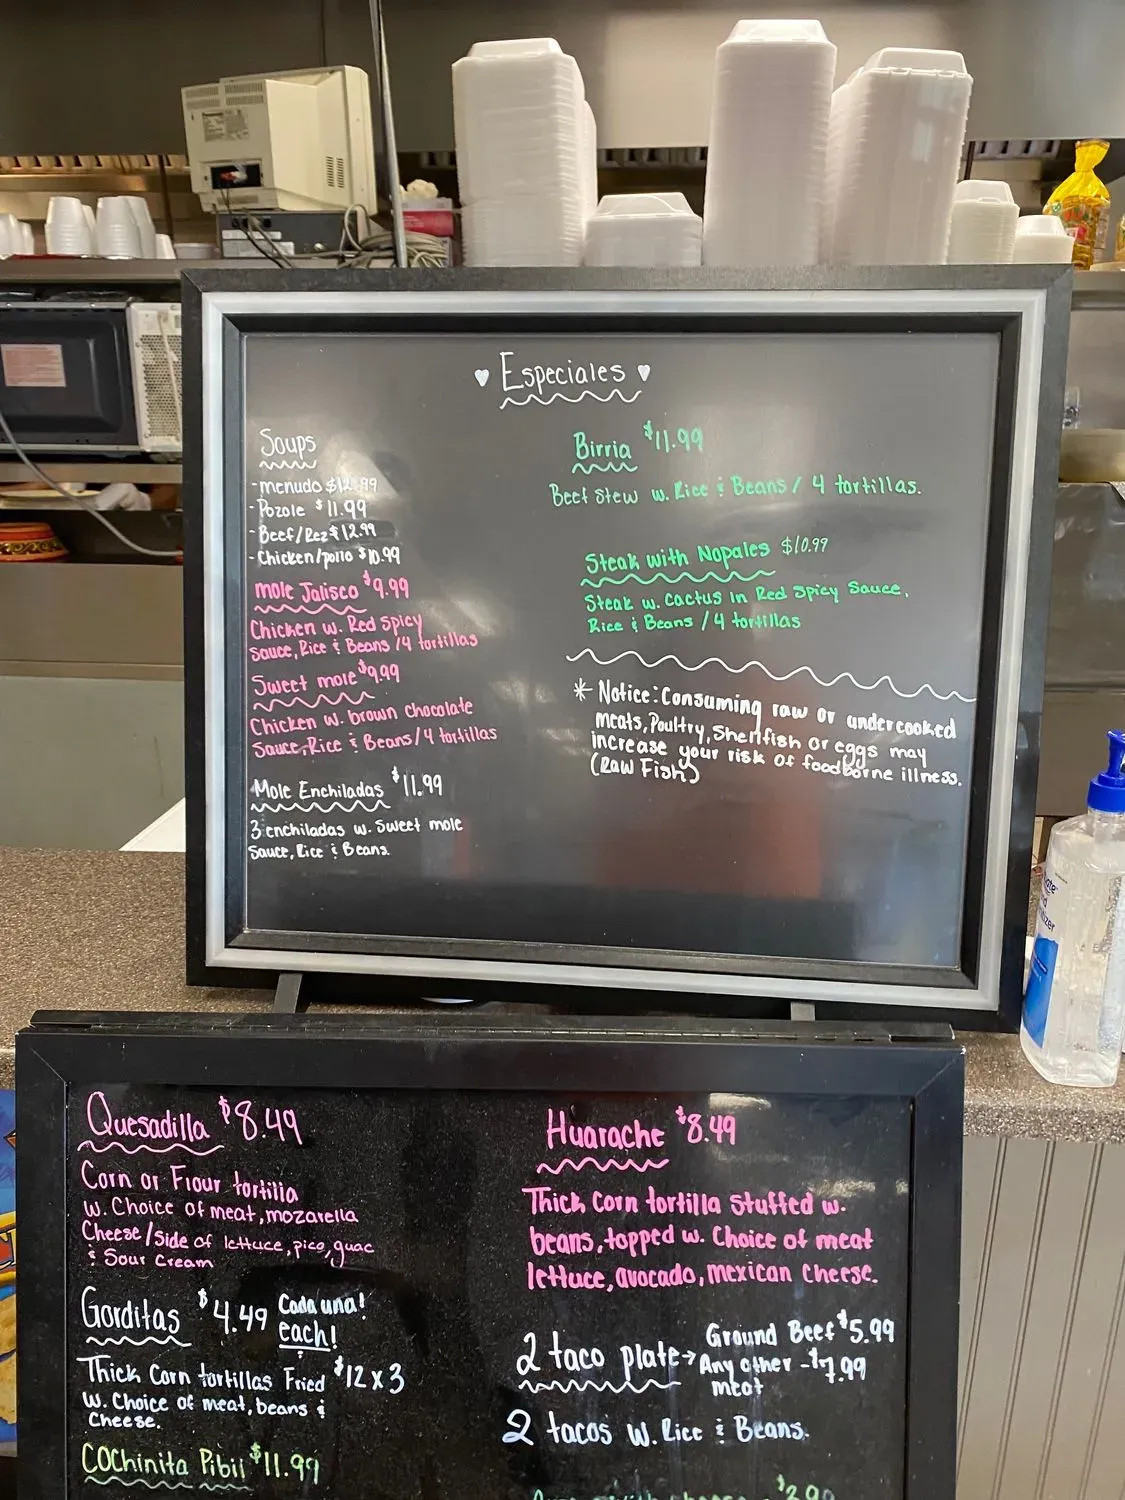 ♥ Especiales ♥
Soups
- menudo $12.99
- Pozole $11.99
- Beef/Rez $12.99
- Chicken/pollo $10.99
Mole Jalisco $9.99
Chicken w. Red Spicy
sauce, Rice & Beans / 4 tortillas
Sweet mole $9.99
Chicken w. brown chocolate
Sauce, Rice & Beans / 4 tortillas
Mole Enchiladas $11.99
3 enchiladas w. Sweet mole
Sauce, Rice & Beans.
Birria $11.99
Beef Stew w. Rice & Beans / 4 tortillas.
Steak with Nopales $10.99
Steak w. cactus in Red Spicy Sauce,
Rice & Beans / 4 tortillas
* Notice: Consuming raw or undercooked
meats, Poultry, Shellfish or eggs may
increase your risk of foodborne illness.
(Raw Fish)
Quesadilla $8.49
Corn or Flour tortilla
w. Choice of meat, mozarella
Cheese/side of lettuce, pico, guac
& Sour Cream
Gorditas $4.49 Cada una!
each!
Thick Corn tortillas Fried $12 x 3
w. Choice of meat, beans &
Cheese.
Cochinita Pibil $11.99
Huarache $8.49
Thick Corn tortilla Stuffed w.
beans, topped w. Choice of meat
lettuce, avocado, mexican cheese.
2 taco plate → Ground Beef $5.99
Any other - $7.99
meat
2 tacos w. Rice & Beans.